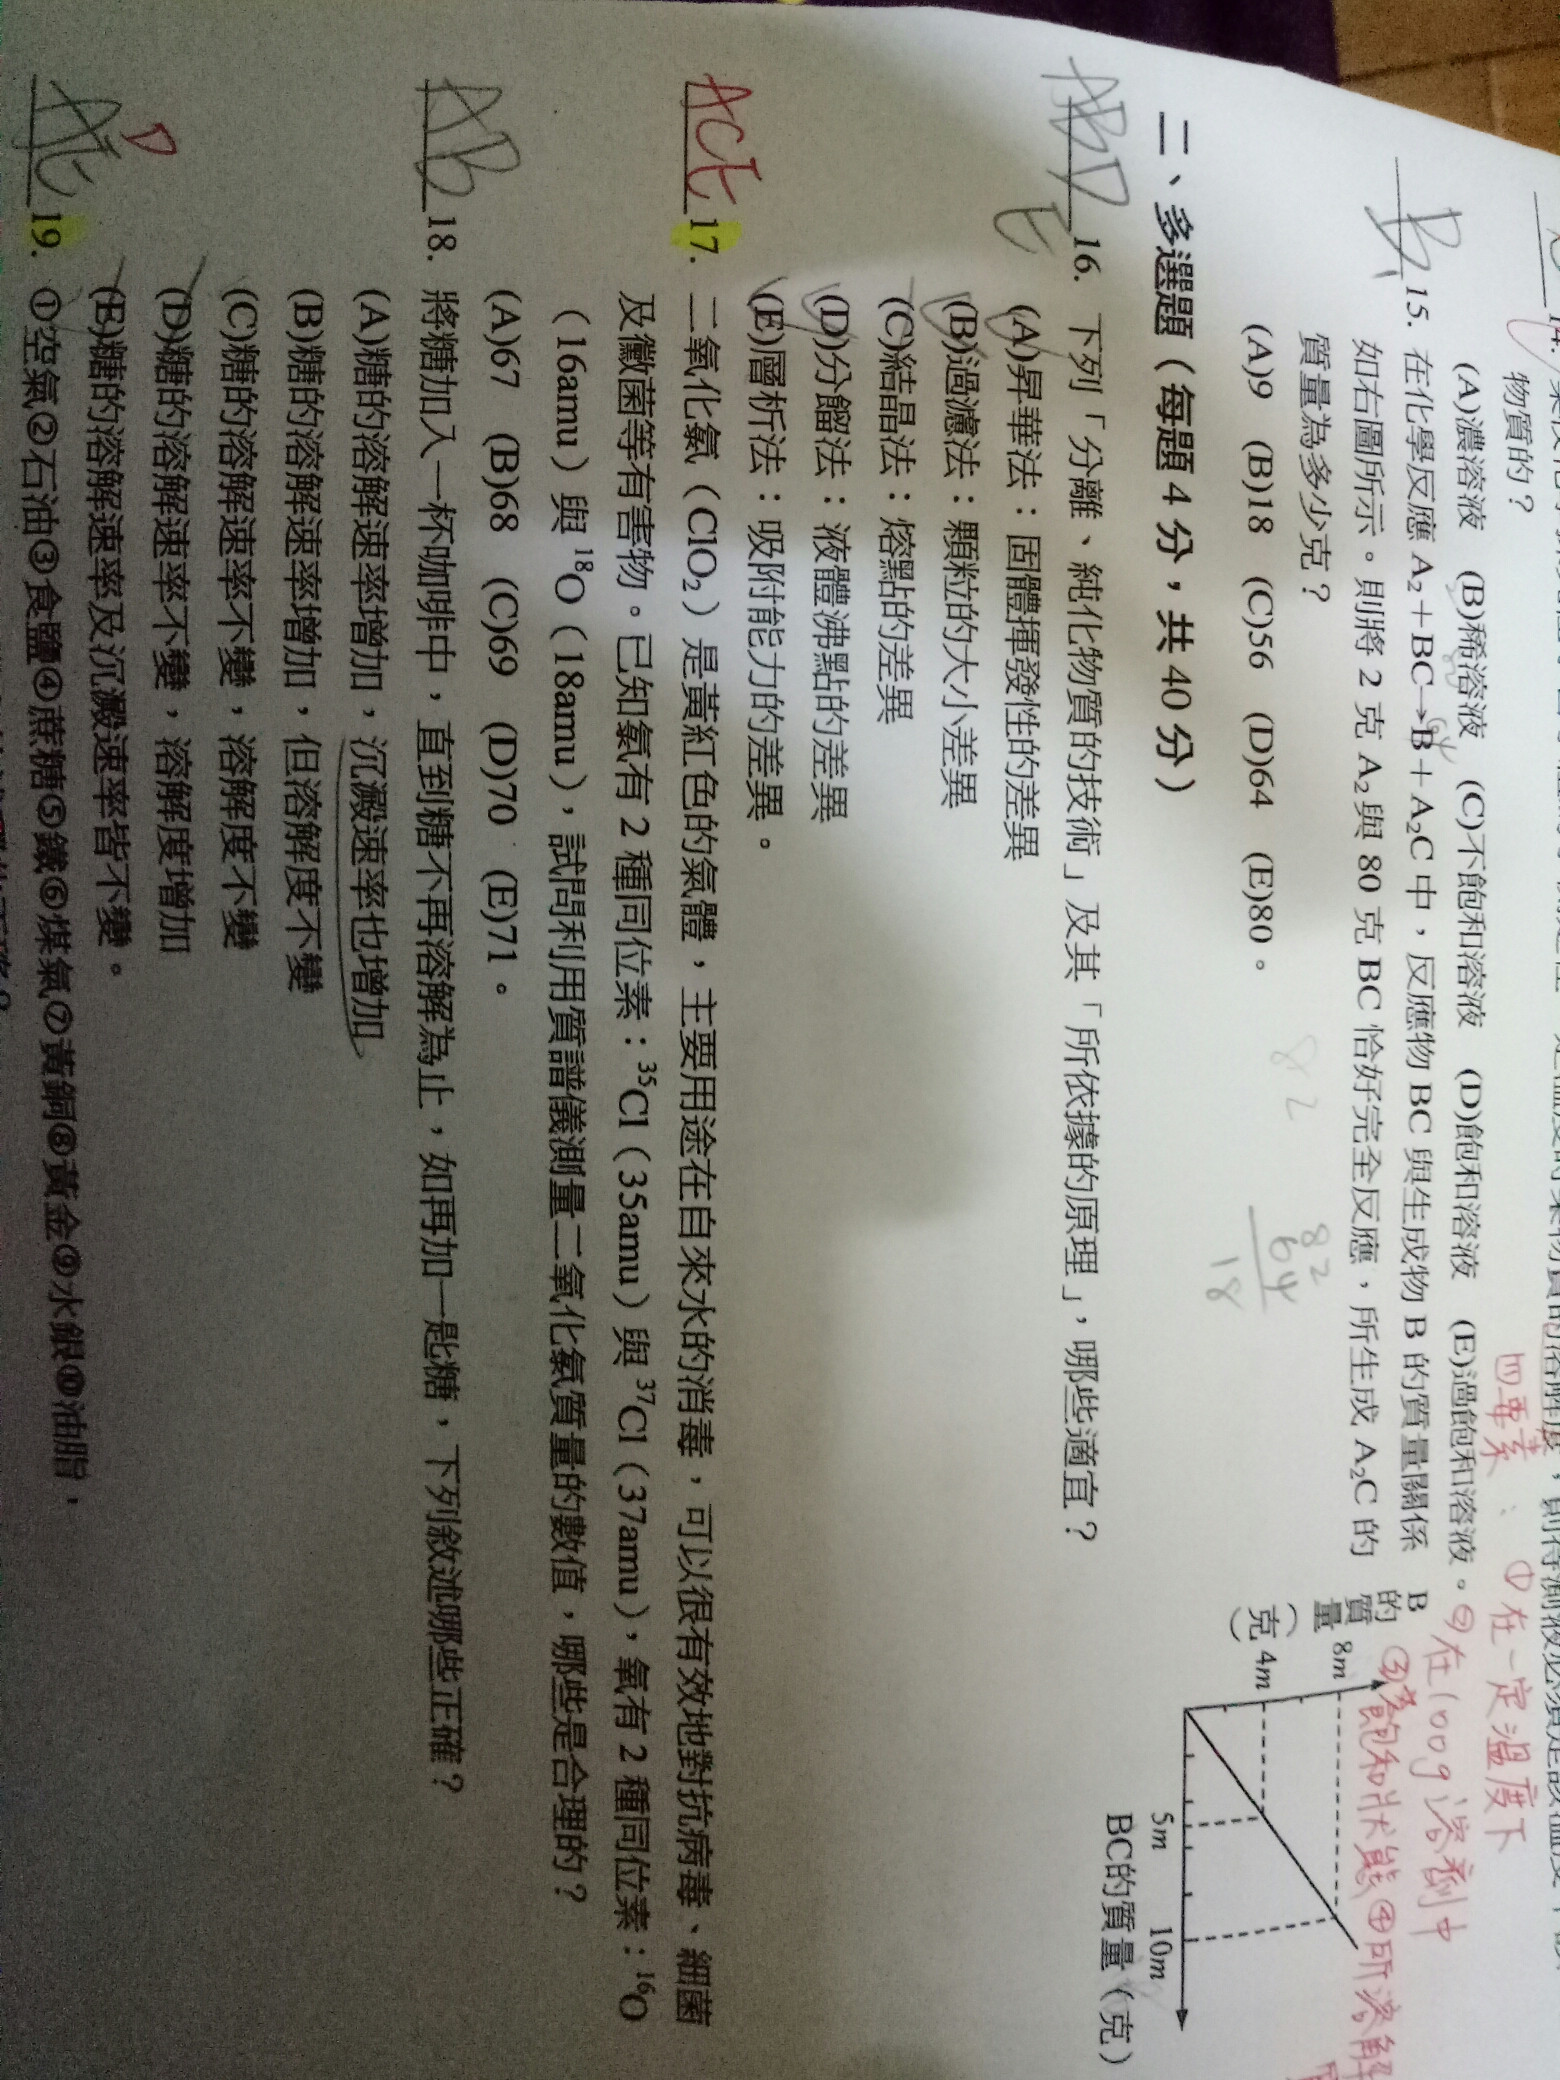 物質的？
(A)濃溶液 (B)稀溶液 (C)不飽和溶液 (D)飽和溶液 (E)過飽和溶液。
四要素：①在一定溫度下
②在100g溶劑中
③飽和狀態④所溶解
B 15. 在化學反應 A₂＋BC→B＋A₂C 中，反應物 BC 與生成物 B 的質量關係
如右圖所示。則將 2 克 A₂ 與 80 克 BC 恰好完全反應，所生成 A₂C 的
質量為多少克？
(A)9 (B)18 (C)56 (D)64 (E)80。
B的質量（克）
8m
4m
5m 10m
BC的質量（克）
82
82
64
18
二、多選題（每題 4 分，共 40 分）
ABD
E
16. 下列「分離、純化物質的技術」及其「所依據的原理」，哪些適宜？
(A)昇華法：固體揮發性的差異
(B)過濾法：顆粒的大小差異
(C)結晶法：熔點的差異
(D)分餾法：液體沸點的差異
(E)層析法：吸附能力的差異。
ACE 17. 二氧化氯（ClO₂）是黃紅色的氣體，主要用途在自來水的消毒，可以很有效地對抗病毒、細菌
及黴菌等有害物。已知氯有 2 種同位素：³⁵Cl（35amu）與 ³⁷Cl（37amu），氧有 2 種同位素：¹⁶O
（16amu）與 ¹⁸O（18amu），試問利用質譜儀測量二氧化氯質量的數值，哪些是合理的？
(A)67 (B)68 (C)69 (D)70 (E)71。
AB 18. 將糖加入一杯咖啡中，直到糖不再溶解為止，如再加一匙糖，下列敘述哪些正確？
(A)糖的溶解速率增加，沉澱速率也增加
(B)糖的溶解速率增加，但溶解度不變
(C)糖的溶解速率不變，溶解度不變
(D)糖的溶解速率不變，溶解度增加
(E)糖的溶解速率及沉澱速率皆不變。
D
19. ①空氣②石油③食鹽④蔗糖⑤鐵⑥煤氣⑦黃銅⑧黃金⑨水銀⑩油脂，